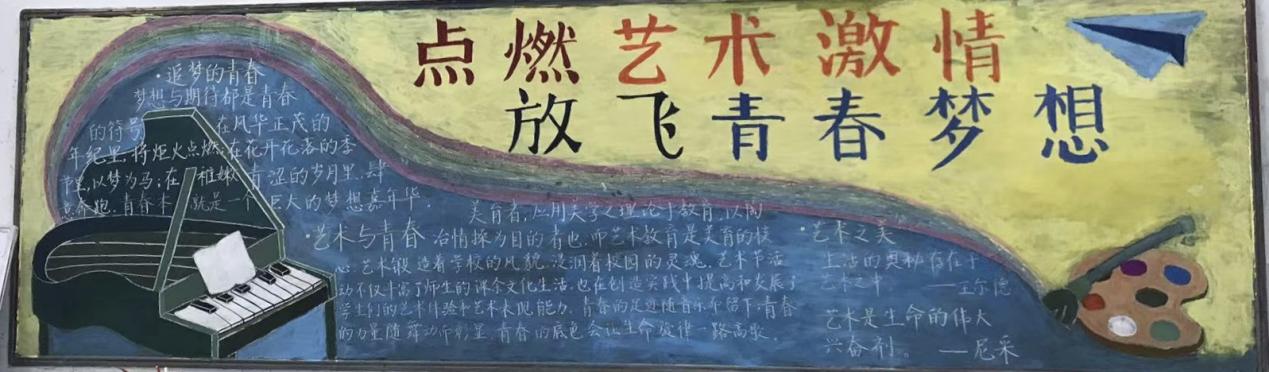 点燃艺术激情
放飞青春梦想
·追梦的青春
梦想与期待都是青春
的符号 在风华正茂的
年纪里,将炬火点燃;在花开花落的季
节里,以梦为马;在 稚嫩 青涩的岁月里,肆
意奔跑。青春本 就是一个 巨大的梦想嘉年华。
·艺术与青春
美育者,应用美学之理论于教育,以陶
冶情操为目的者也。而艺术教育是美育的核
心。艺术锻造着学校的风貌,浸润着校园的灵魂。艺术节活
动不仅丰富了师生的课余文化生活,也在创造实践中提高和发展了
学生们的艺术体验和艺术表现能力。青春的足迹随音乐而留下,青春
的力量随舞动而彰显,青春的底色会让生命旋律一路高歌。
·艺术之美
生活的奥秘存在于
艺术之中 ——王尔德
艺术是生命的伟大
兴奋剂。 ——尼采